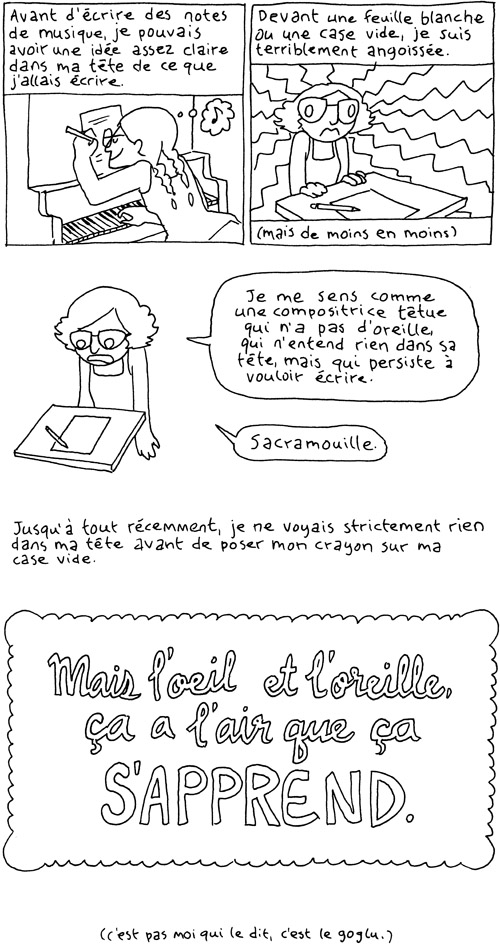 Avant d'écrire des notes
de musique, je pouvais
avoir une idée assez claire
dans ma tête de ce que
j'allais écrire.
Devant une feuille blanche
ou une case vide, je suis
terriblement angoissée.
(mais de moins en moins)
Je me sens comme
une compositrice têtue
qui n'a pas d'oreille,
qui n'entend rien dans sa
tête, mais qui persiste à
vouloir écrire.
Sacramouille.
Jusqu'à tout récemment, je ne voyais strictement rien
dans ma tête avant de poser mon crayon sur ma
case vide.
Mais l'oeil et l'oreille,
ça a l'air que ça
S'APPREND.
(c'est pas moi qui le dit, c'est le goglu.)